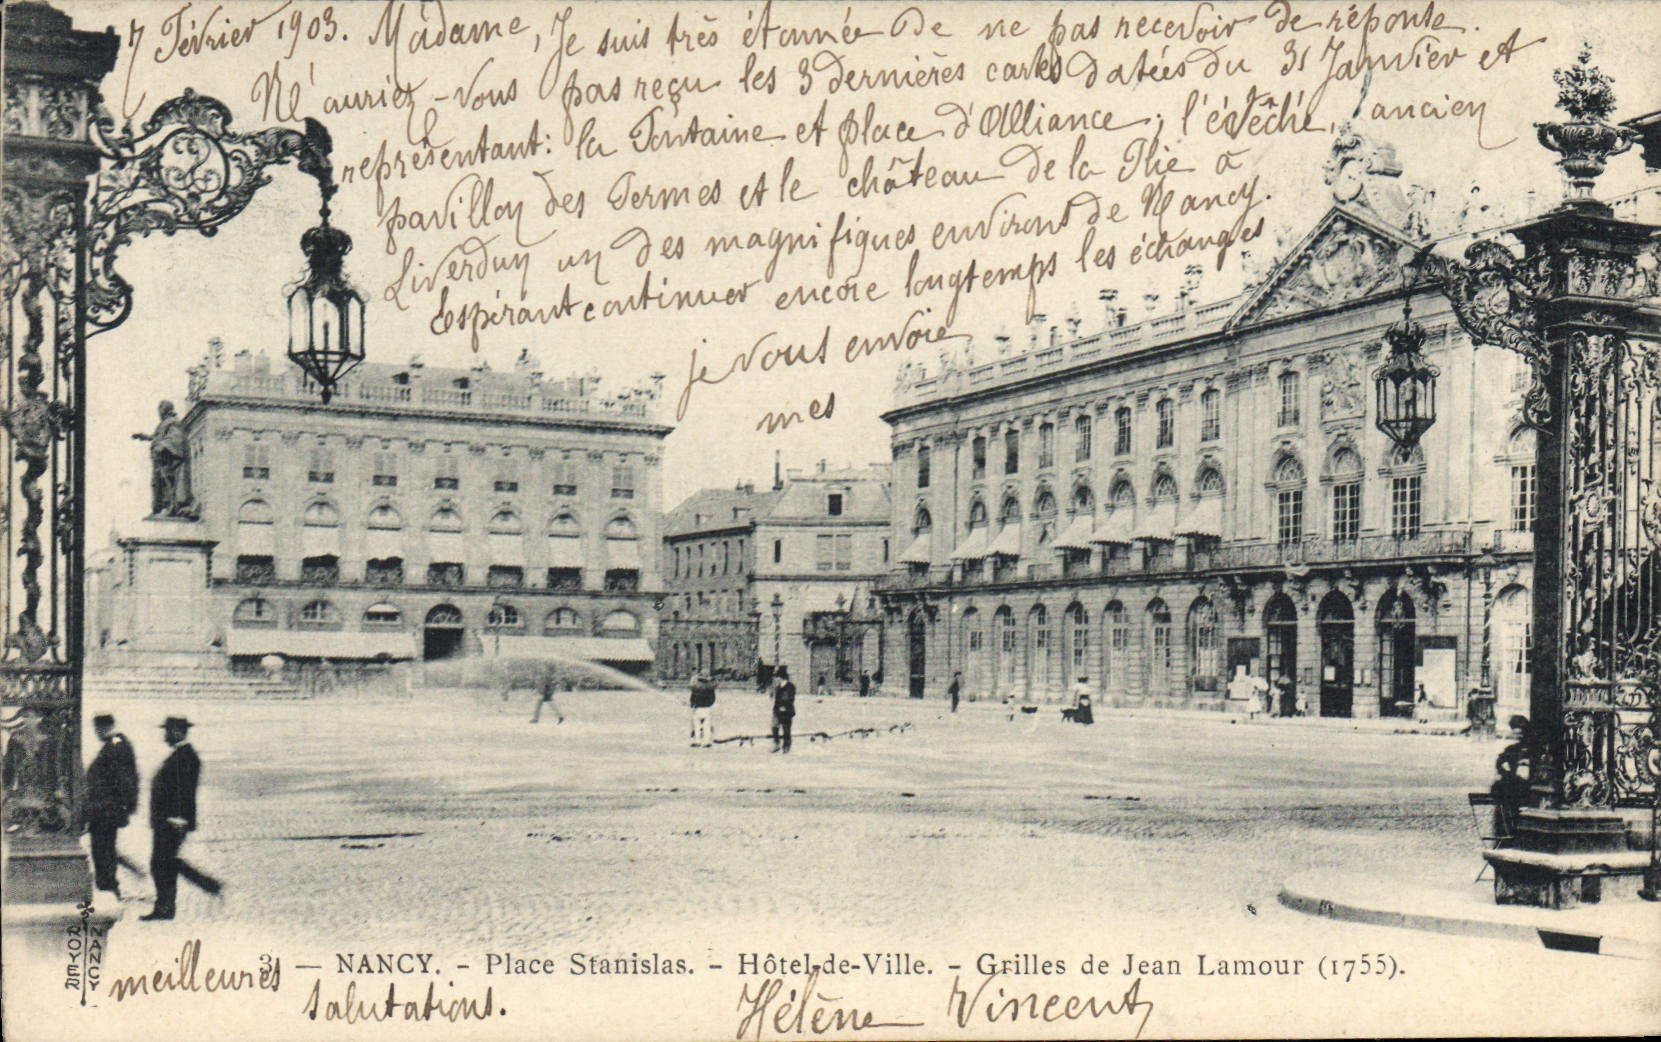 7 Février 1903. Madame, Je suis très étonnée de ne pas recevoir de réponse.
N'auriez-vous pas reçu les 3 dernières cartes datées du 31 Janvier et
représentant: la Fontaine et place d'Alliance; l'évêché, ancien
pavillon des Fermes et le château de la Flie à
Liverdun un des magnifiques environs de Nancy.
Espérant continuer encore longtemps les échanges
je vous envoie
mes
3. — NANCY. - Place Stanislas. - Hôtel-de-Ville. - Grilles de Jean Lamour (1755).
ROYER
NANCY
meilleures
salutations.
Hélène Vincent